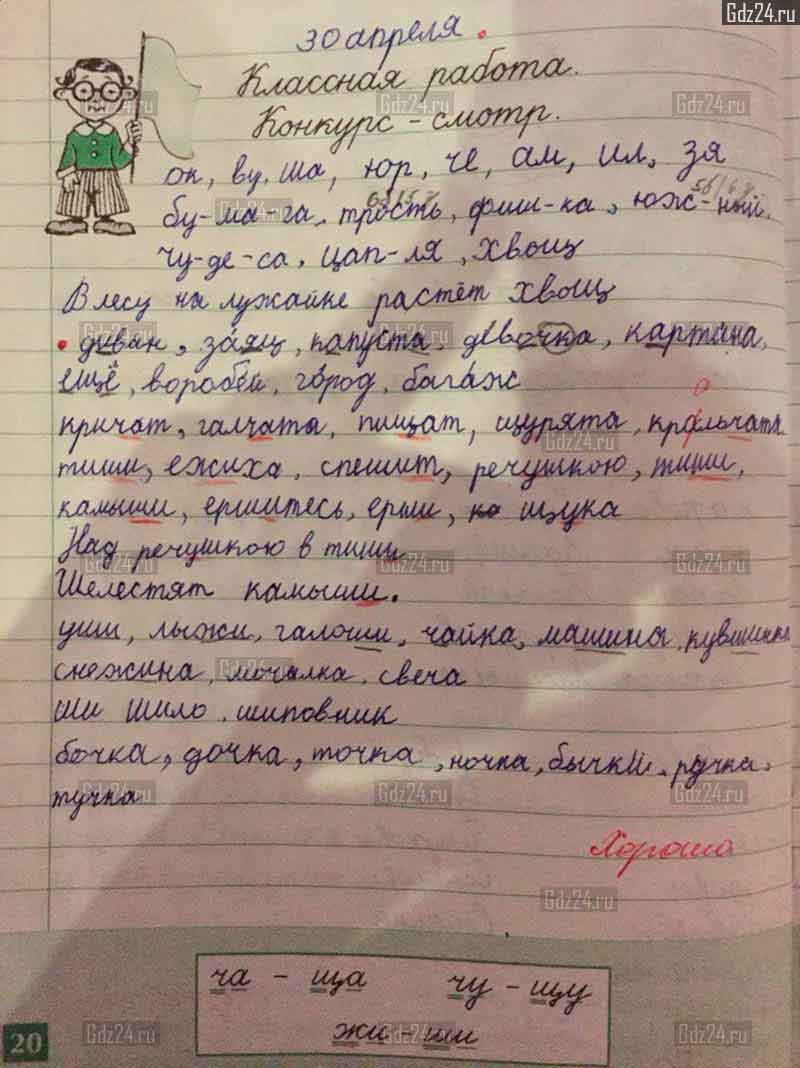 Gdz24.ru
30 апреля.
Классная работа.
Конкурс - смотр.
ок, ву, ша, юр, че, ам, ил, зя
бу-ма-га, трость, фиш-ка, юж-ный,
чу-де-са, цап-ля, хвощ
В лесу на лужайке растёт хвощ
диван, заяц, капуста, девочка, картина,
ещё, воробей, город, багаж
кричат, галчата, пищат, щурята, крольчата
тиши, ежиха, спешит, речушкою, тиши,
камыши, ершитесь, ерши, щука
Над речушкою в тиши
Шелестят камыши.
уши, лыжи, галоши, чайка, машина, кувшинка
снежина, мочалка, свеча
ши шило, шиповник
бочка, дочка, точка, ночка, бычки, ручка,
тучка
Хорошо
ча - ща чу - щу
жи - ши
20